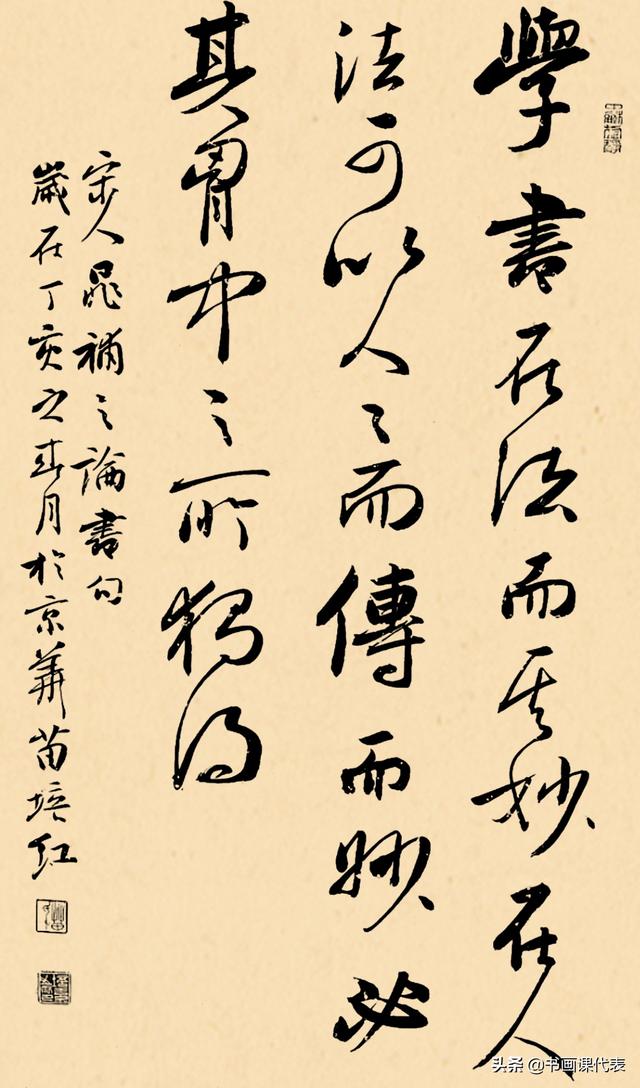 學書在法而其妙在人
法可以人人而傳而妙必
其胷中之所獨得
宋人晁補之論書句
歲在丁亥之春月於京華苗培紅
头条 @书画课代表